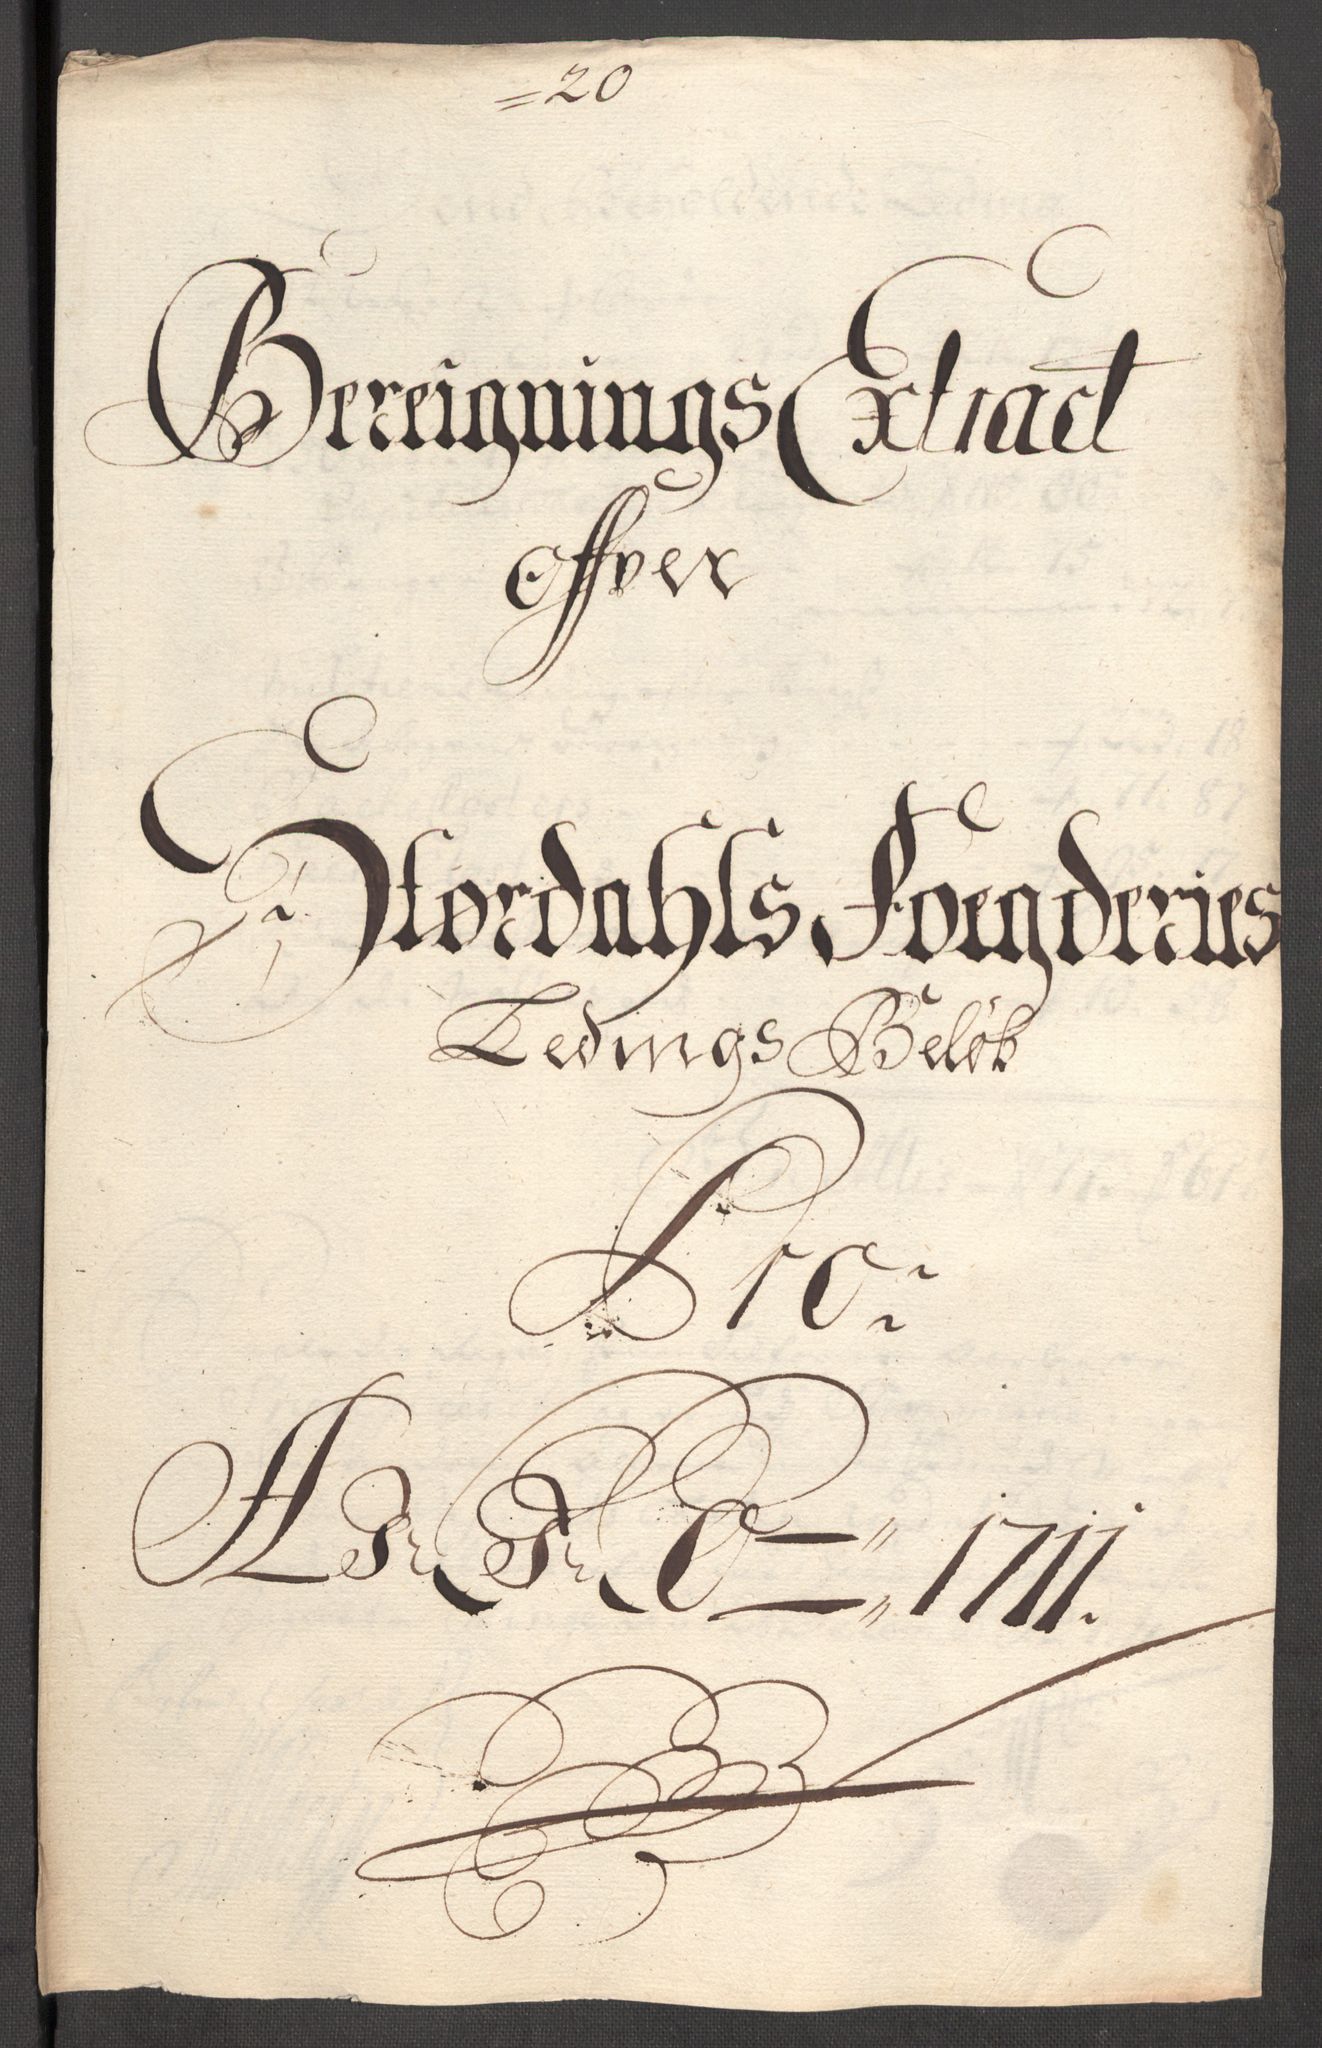 =20
Bereignings Extract
offver
Størdahls Foegderies
Ledings Beløb
Pro:
ANNO = 1711.